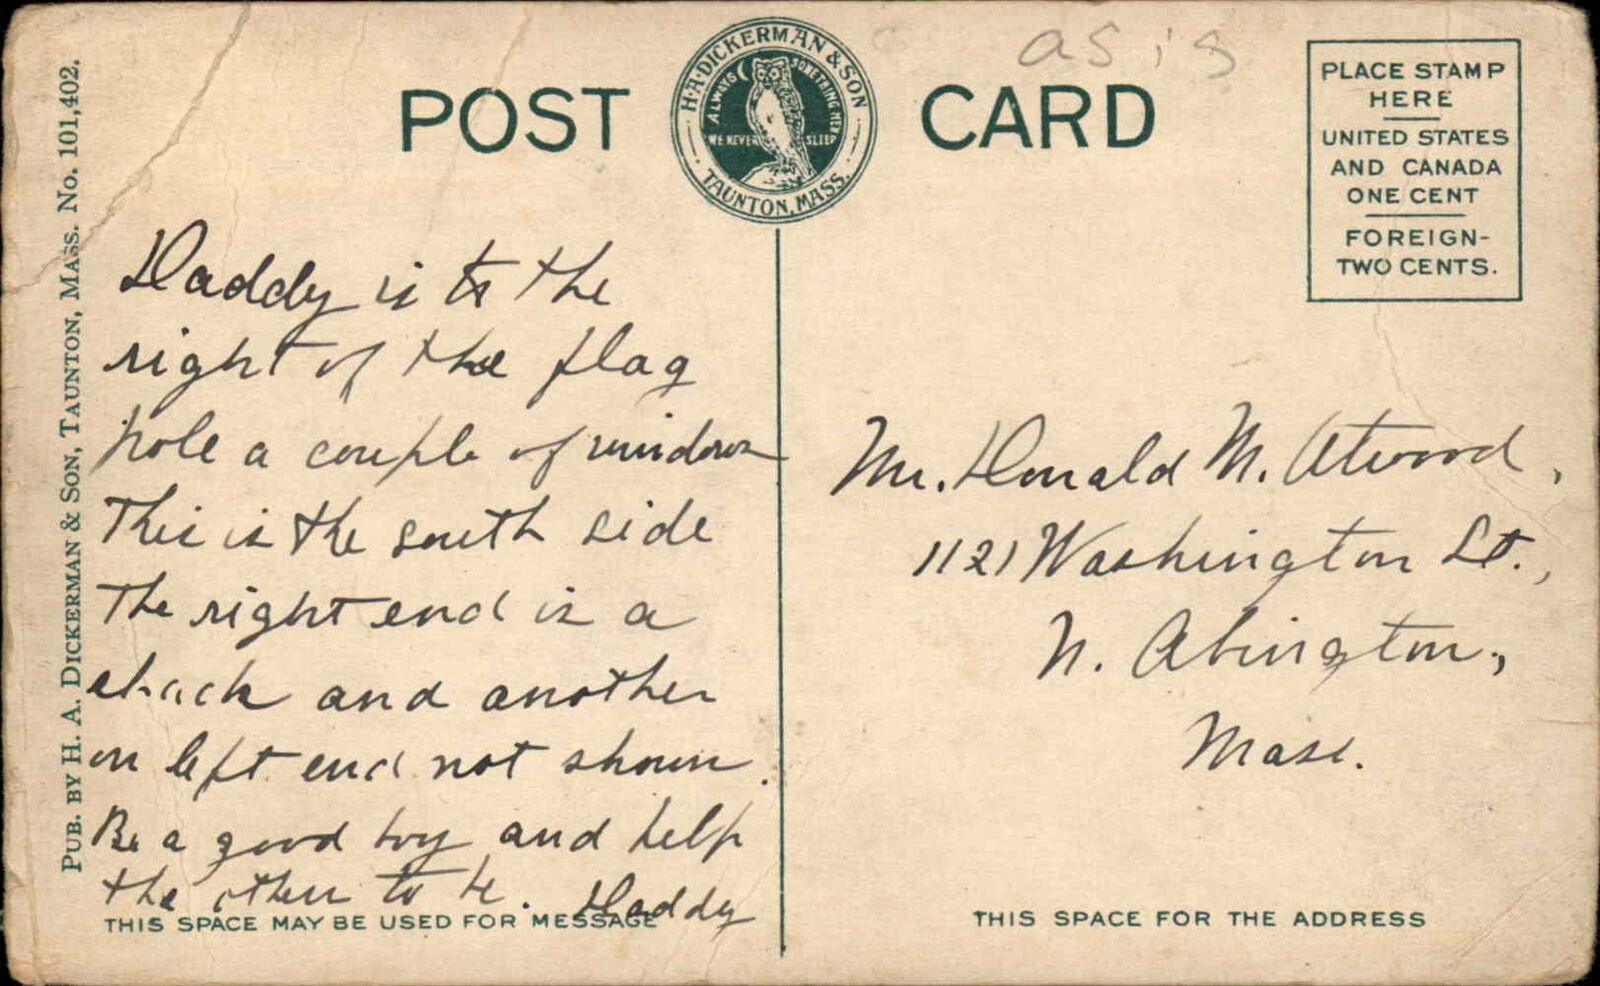 as is
POST CARD
H. A. DICKERMAN & SON
ALWAYS SOMETHING NEW
WE NEVER SLEEP
TAUNTON, MASS.
PLACE STAMP
HERE
UNITED STATES
AND CANADA
ONE CENT
FOREIGN-
TWO CENTS.
PUB. BY H. A. DICKERMAN & SON, TAUNTON, MASS. No. 101,402.
Daddy is to the
right of the flag
pole a couple of windows
This is the south side
The right end is a
and another
on left end not shown.
Be a good boy and help
the others to be. Daddy
THIS SPACE MAY BE USED FOR MESSAGE
Mr. Donald M. Atwood,
1121 Washington St.,
N. Abington,
Mass.
THIS SPACE FOR THE ADDRESS